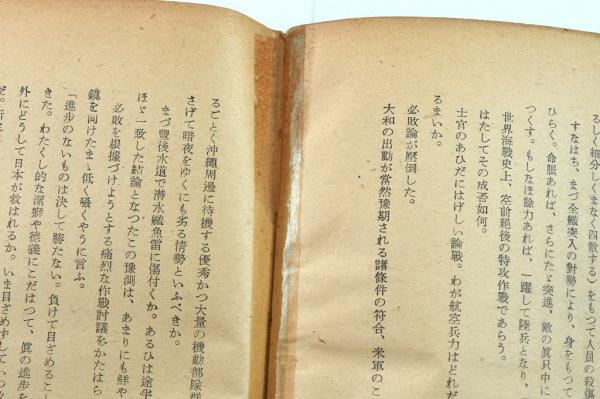 るしく細分しくまなく四散する）をもつて人員の殺傷
すなはち、まづ全艦突入の對勢により、身をもつて
ひらく。命脈あれば、さらにたゞ突進、敵の眞只中に
つくす。もしなほ餘力あれば、一躍して陸兵となり、
はたしてその成否如何。
世界海戰史上、空前絶後の特攻作戰であらう。
士官のあひだにはげしい論戰。わが航空兵力はどれだ
るまいか。
必敗論が壓倒した。
大和の出動が當然豫期される諸條件の符合、米軍のこ
るごとく沖繩周邊に待機する優秀かつ大量の機動部隊群
さげて暗夜をゆくにも劣る情勢といふべきか。
まづ豐後水道で潜水艦魚雷に傷付くか。あるひは途半
ほゞ一致した結論となつたこの豫測は、あまりにも鮮や
必敗を根據づけようとする痛烈な作戰討議をかたはら
鏡を向けたまゝ低く囁くやうに言ふ。
「進步のないものは決して勝たない。負けて目ざめるこ
きた。わたくし的な潔癖や德義にこだはつて、眞の進步を
外にどうして日本が救はれるか。いま目ざめずしていつ